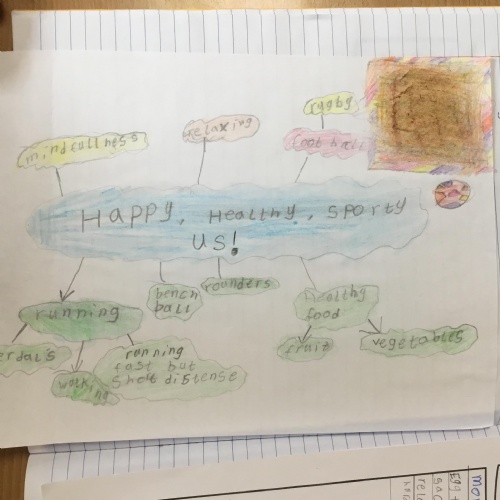 rggby
relaxing
foot ball
Happy, Healthy, Sporty
us!
bench
ball
rounders
Healthy
food
running
fruit
vegetables
erdals
walk
ing
running
fast but
Shot distense